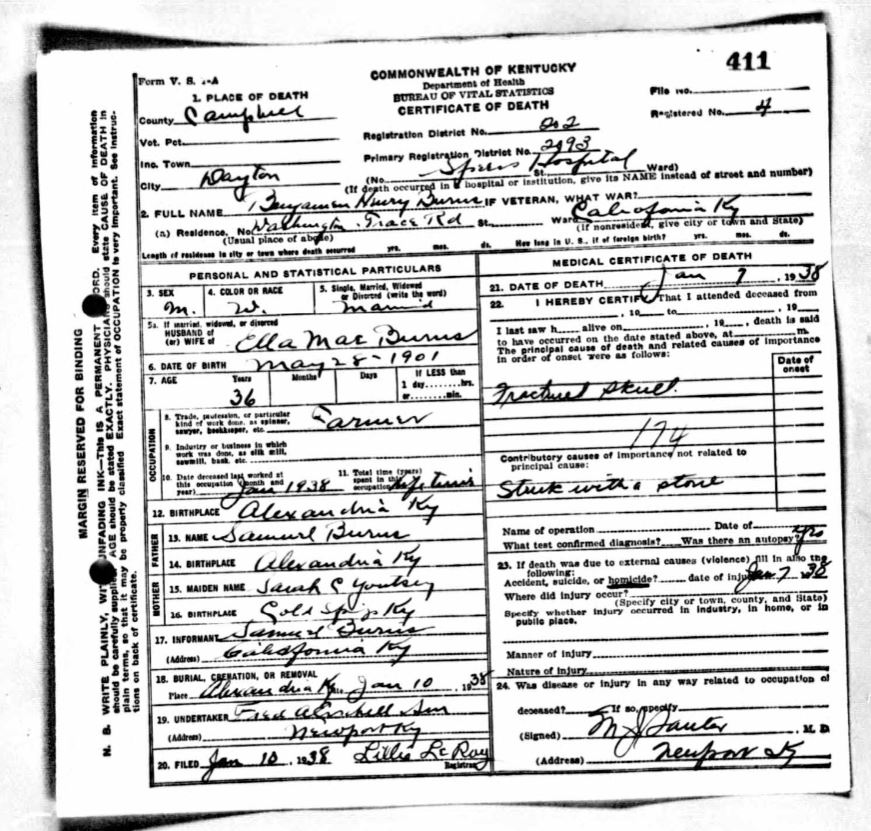 411
Form V. S. 1-A
COMMONWEALTH OF KENTUCKY
Department of Health
BUREAU OF VITAL STATISTICS
CERTIFICATE OF DEATH
File No.
Registered No. 4
1. PLACE OF DEATH
County Campbell
Vot. Pct.
Inc. Town
City Dayton
Registration District No. 202
Primary Registration District No. 2093
(No. Spiers Hospital St. Ward)
(If death occurred in a hospital or institution, give its NAME instead of street and number)
2. FULL NAME Benjamen Henry Burns IF VETERAN, WHAT WAR?
(a) Residence. No. Washington Trace Rd St. Ward California Ky
(Usual place of abode) (If nonresident, give city or town and State)
Length of residence in city or town where death occurred yrs. mos. ds. How long in U. S., if of foreign birth? yrs. mos. ds.
PERSONAL AND STATISTICAL PARTICULARS
3. SEX M. 4. COLOR OR RACE W. 5. Single, Married, Widowed or Divorced (write the word) Married
5a. If married, widowed, or divorced
HUSBAND of
(or) WIFE of Ella Mae Burns
6. DATE OF BIRTH May 28 - 1901
7. AGE Years 36 Months Days If LESS than
1 day........hrs.
or........min.
OCCUPATION
8. Trade, profession, or particular
kind of work done, as spinner,
sawyer, bookkeeper, etc. Farmer
9. Industry or business in which
work was done, as silk mill,
sawmill, bank, etc.
10. Date deceased last worked at
this occupation (month and
year) Jan 1938
11. Total time (years)
spent in this
occupation life time
12. BIRTHPLACE Alexandria Ky
FATHER
13. NAME Samuel Burns
14. BIRTHPLACE Alexandria Ky
MOTHER
15. MAIDEN NAME Sarah C Youtsey
16. BIRTHPLACE Cold Spgs Ky
17. INFORMANT Samuel Burns
(Address) California Ky
18. BURIAL, CREMATION, OR REMOVAL
Place Alexandria Ky. Jan 10, 1938
19. UNDERTAKER Fred
(Address) Newport Ky
20. FILED Jan 10, 1938 Lillie LeRoy
Registrar
MEDICAL CERTIFICATE OF DEATH
21. DATE OF DEATH Jan 7, 1938
22. I HEREBY CERTIFY, That I attended deceased from
, 19 to , 19
I last saw h alive on , 19 , death is said
to have occurred on the date stated above, at m.
The principal cause of death and related causes of importance
in order of onset were as follows:
Date of
onset
Fractured Skull.
174
Contributory causes of importance not related to
principal cause:
Struck with a stone
Name of operation Date of
What test confirmed diagnosis? Was there an autopsy? yes
23. If death was due to external causes (violence) fill in also the
following:
Accident, suicide, or homicide? date of injury Jan 7 38
Where did injury occur?
(Specify city or town, county, and State)
Specify whether injury occurred in industry, in home, or in
public place.
Manner of injury
Nature of injury
24. Was disease or injury in any way related to occupation of
deceased? If so, specify
(Signed) , M. D.
(Address) Newport Ky
MARGIN RESERVED FOR BINDING
N. B. WRITE PLAINLY, WITH UNFADING INK—This is A PERMANENT RECORD. Every item of information
should be carefully supplied. AGE should be stated EXACTLY. PHYSICIANS should state CAUSE OF DEATH in
plain terms, so that it may be properly classified. Exact statement of OCCUPATION is very important. See instruc-
tions on back of certificate.